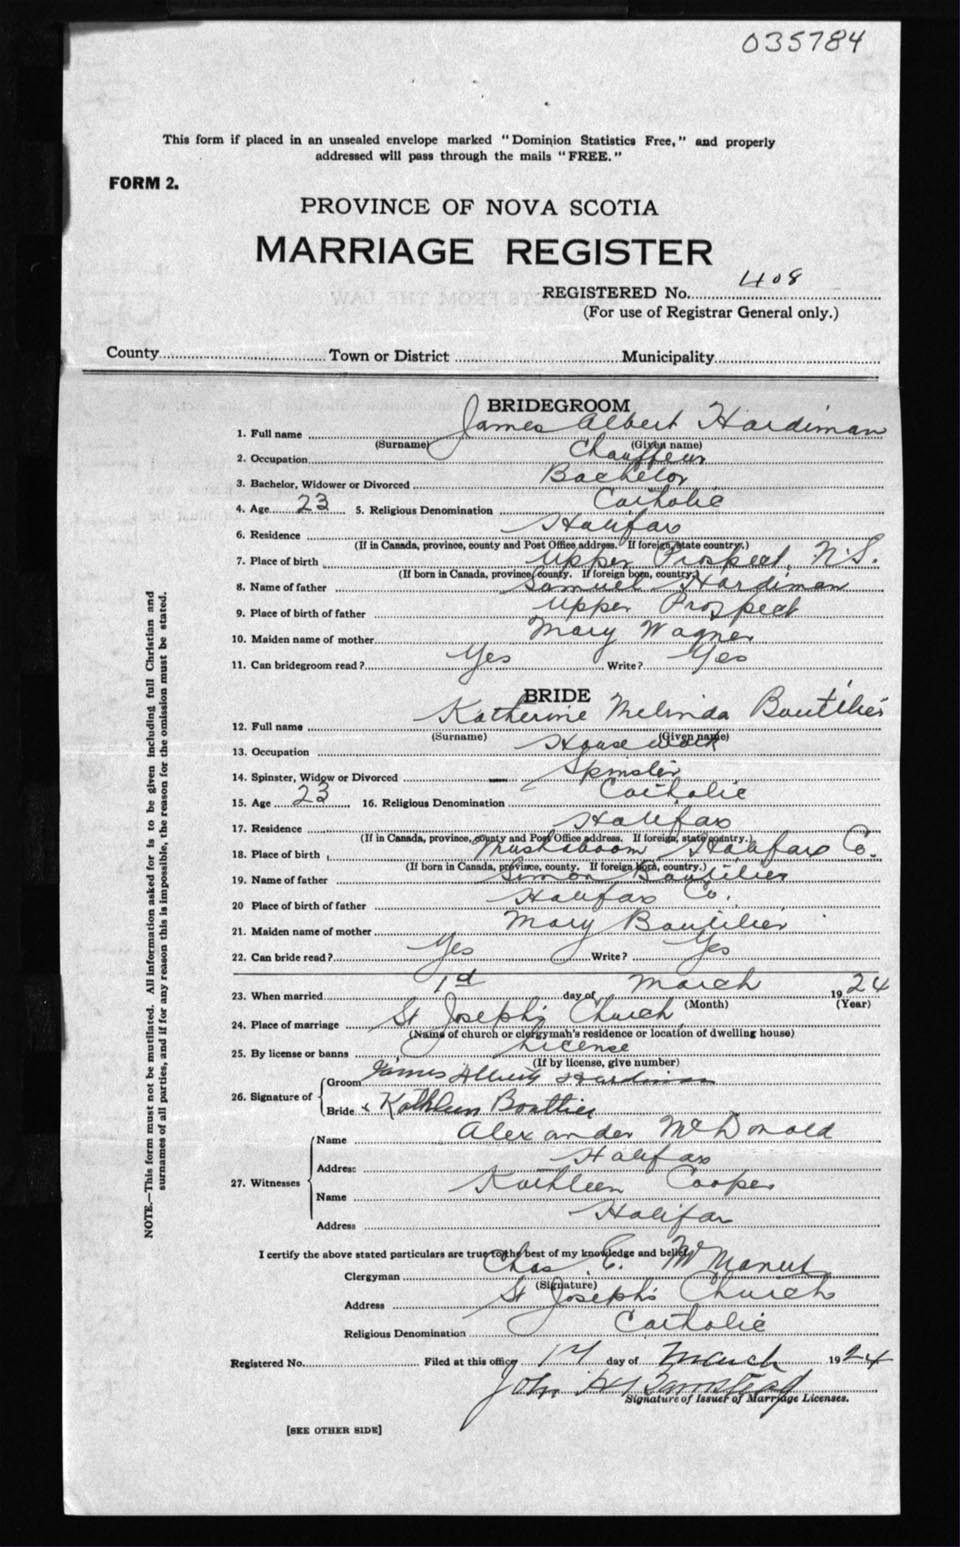 035784
This form if placed in an unsealed envelope marked "Dominion Statistics Free," and properly
addressed will pass through the mails "FREE."
FORM 2.
PROVINCE OF NOVA SCOTIA
MARRIAGE REGISTER
REGISTERED No. 408
(For use of Registrar General only.)
County Town or District Municipality
BRIDEGROOM
1. Full name James Albert Hardiman
(Surname) (Given name)
2. Occupation Chauffeur
3. Bachelor, Widower or Divorced Bachelor
4. Age 23 5. Religious Denomination Catholic
6. Residence Halifax
(If in Canada, province, county and Post Office address. If foreign, state country.)
7. Place of birth Upper Prospect, N.S.
(If born in Canada, province, county. If foreign born, country.)
8. Name of father Samuel Hardiman
9. Place of birth of father Upper Prospect
10. Maiden name of mother Mary Wagner
11. Can bridegroom read? Yes Write? Yes
BRIDE
12. Full name Katherine Melinda Boutilier
(Surname) (Given name)
13. Occupation House work
14. Spinster, Widow or Divorced Spinster
15. Age 23 16. Religious Denomination Catholic
17. Residence Halifax
(If in Canada, province, county and Post Office address. If foreign, state country.)
18. Place of birth Mushaboom Halifax Co.
(If born in Canada, province, county. If foreign born, country.)
19. Name of father Simon Boutilier
20 Place of birth of father Halifax Co.
21. Maiden name of mother Mary Boutilier
22. Can bride read? Yes Write? Yes
23. When married 1st day of March 1924
(Month) (Year)
24. Place of marriage St Joseph's Church
(Name of church or clergymah's residence or location of dwelling house)
25. By license or banns License
(If by license, give number)
26. Signature of Groom James Albert Hardiman
Bride x Kathleen Bouttier
27. Witnesses Name Alexander McDonald
Address Halifax
Name Kathleen Cooper
Address Halifax
I certify the above stated particulars are true to the best of my knowledge and belief.
Clergyman Chas E. McManus
(Signature)
Address St Joseph's Church
Religious Denomination Catholic
Registered No. Filed at this office 17 day of March 1924
John H
Signature of Issuer of Marriage Licenses.
[SEE OTHER SIDE]
NOTE.—This form must not be mutilated. All information asked for is to be given including full Christian and
surnames of all parties, and if for any reason this is impossible, the reason for the omission must be stated.